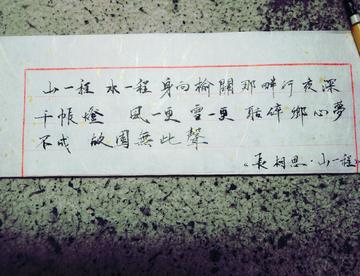 山一程 水一程 身向榆關那畔行 夜深
千帳燈 風一更 雪一更 聒碎鄉心夢
不成 故園無此聲
《長相思·山一程》